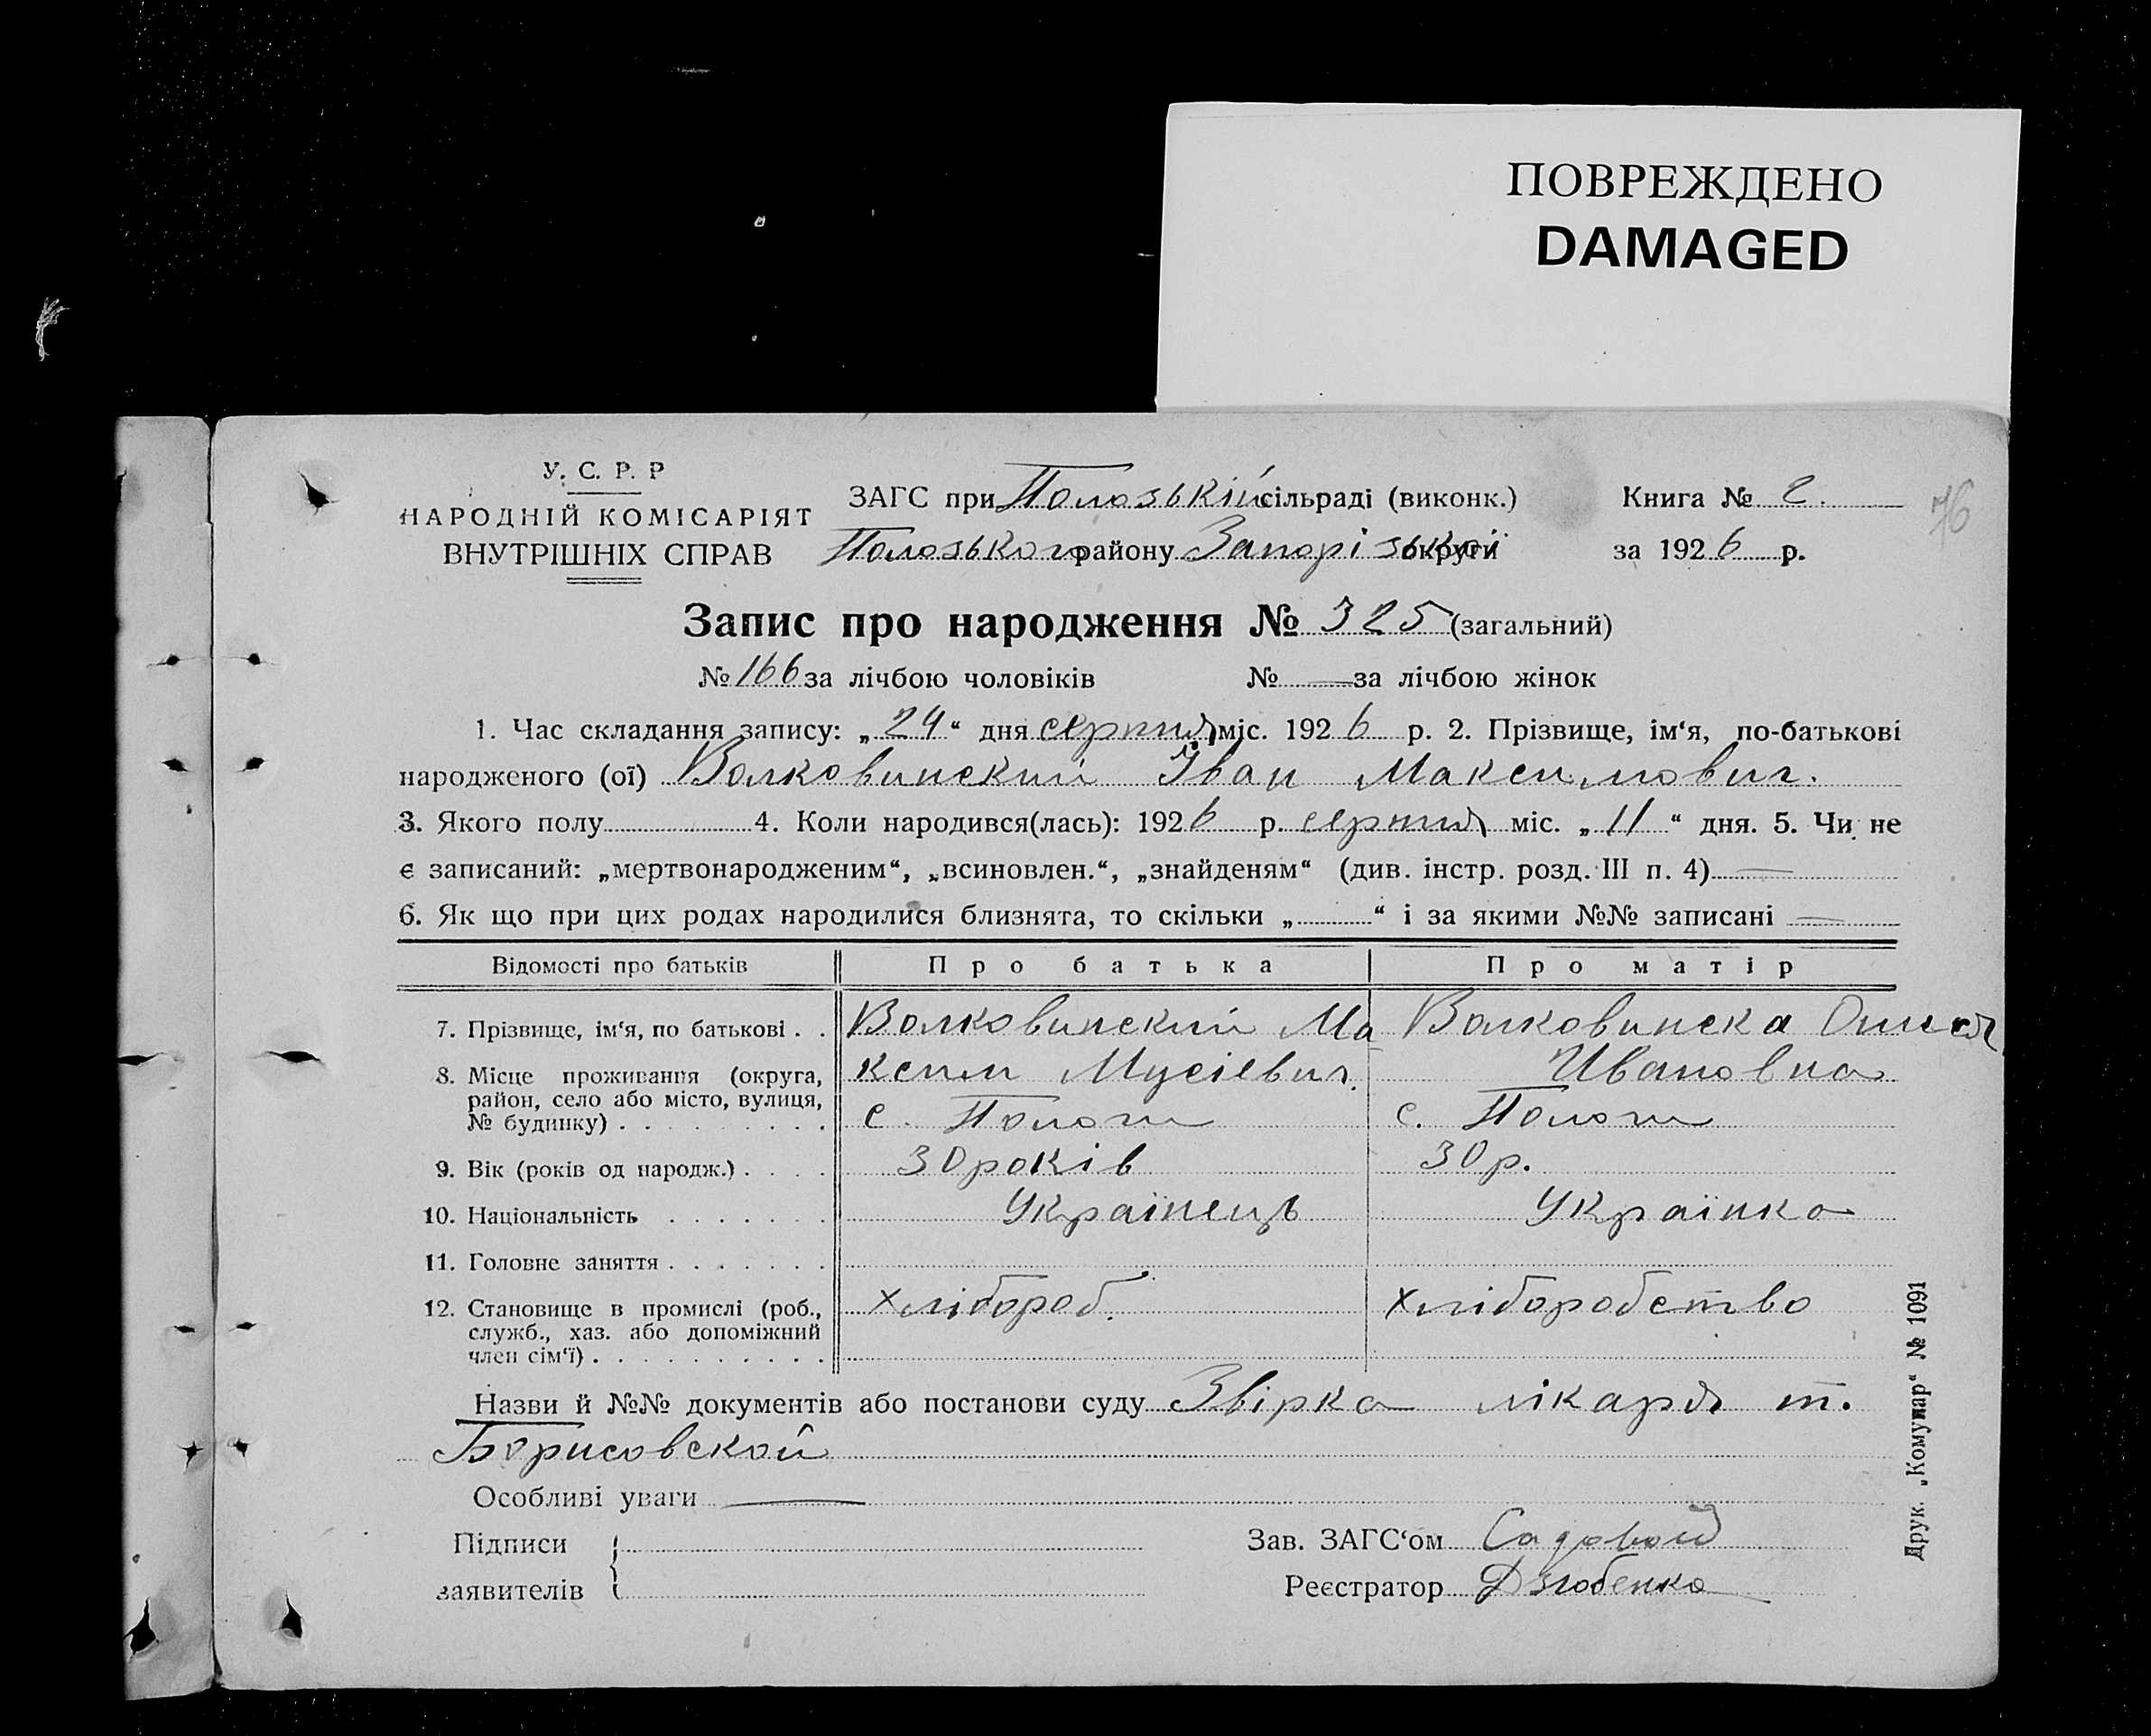 ПОВРЕЖДЕНО
DAMAGED
У. С. Р. Р
НАРОДНІЙ КОМІСАРІЯТ
ВНУТРІШНІХ СПРАВ
ЗАГС при Пологській сільраді (виконк.)
Пологського району Запорізької округи
Книга № 2.
за 1926 р.
76
Запис про народження № 325 (загальний)
№ 166 за лічбою чоловіків № — за лічбою жінок
1. Час складання запису: „24“ дня серпня міс. 1926 р. 2. Прізвище, ім‘я, по-батькові
народженого (ої) Волковинский Іван Максимович.
3. Якого полу 4. Коли народився(лась): 1926 р. серпня міс. „11“ дня. 5. Чи не
є записаний: „мертвонародженим“, „всиновлен.“, „знайденям“ (див. інстр. розд. III п. 4) —
6. Як що при цих родах народилися близнята, то скільки „ “ і за якими №№ записані —
Відомості про батьків Про батька Про матір
7. Прізвище, ім‘я, по батькові . . Волковинский Ма Волковинска
8. Місце проживання (округа, ксим Мусієвич. Ивановна
район, село або місто, вулиця,
№ будинку) . . . . . . . . . с. Пологи с. Пологи
9. Вік (років од народж.) . . . . 30 років 30 р.
10. Національність . . . . . . . Українець Українка
11. Головне заняття . . . . . . .
12. Становище в промислі (роб., хлібороб. хліборобство
служб., хаз. або допоміжний
член сім‘ї) . . . . . . . . . .
Назви й №№ документів або постанови суду Звірка лікаря т.
Борисовской
Особливі уваги —
Підписи
заявителів
Зав. ЗАГС‘ом Садовой
Реєстратор Дзюбенко
Друк. „Комунар“ № 1091